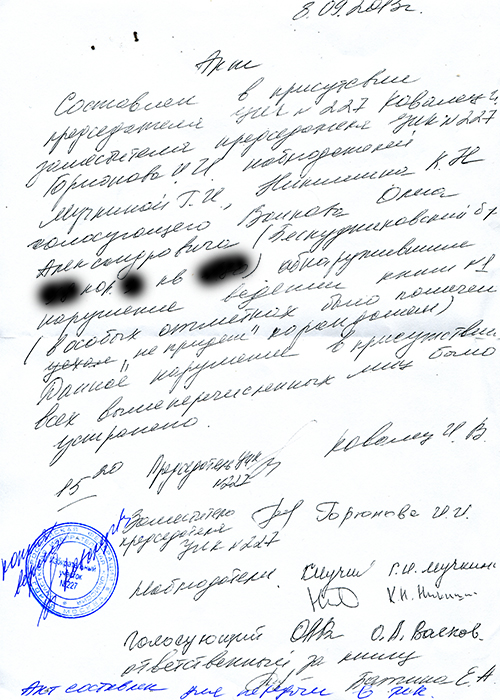 8.09.2013г.
Акт
Составлен в присутствии
председателя УИК № 227 Ковалец И.
заместителя председателя УИК № 227
Горюнова И.И. наблюдателей
Мучкиной Г.И., Никишина К.Н
голосующего Волкова Олега
Александровича (Бескудниковский б-р
кор. кв ) обнаружившие
нарушение ведении книги №1
(в особых отметках было помечен
"не придет" карандашом)
Данное нарушение в присутствии
всех вышеперечисленных лиц было
устранено.
15 20 Председатель УИК Ковалец И. В.
№227
Заместитель Горюнова И.И.
председателя
УИК №227
Наблюдатели Г.И. Мучкина
К.Н. Никишин
голосующий О.А. Волков
ответственный за книгу Е.А.
копия верна
участок
№227
Акт составлен для передачи в УИК